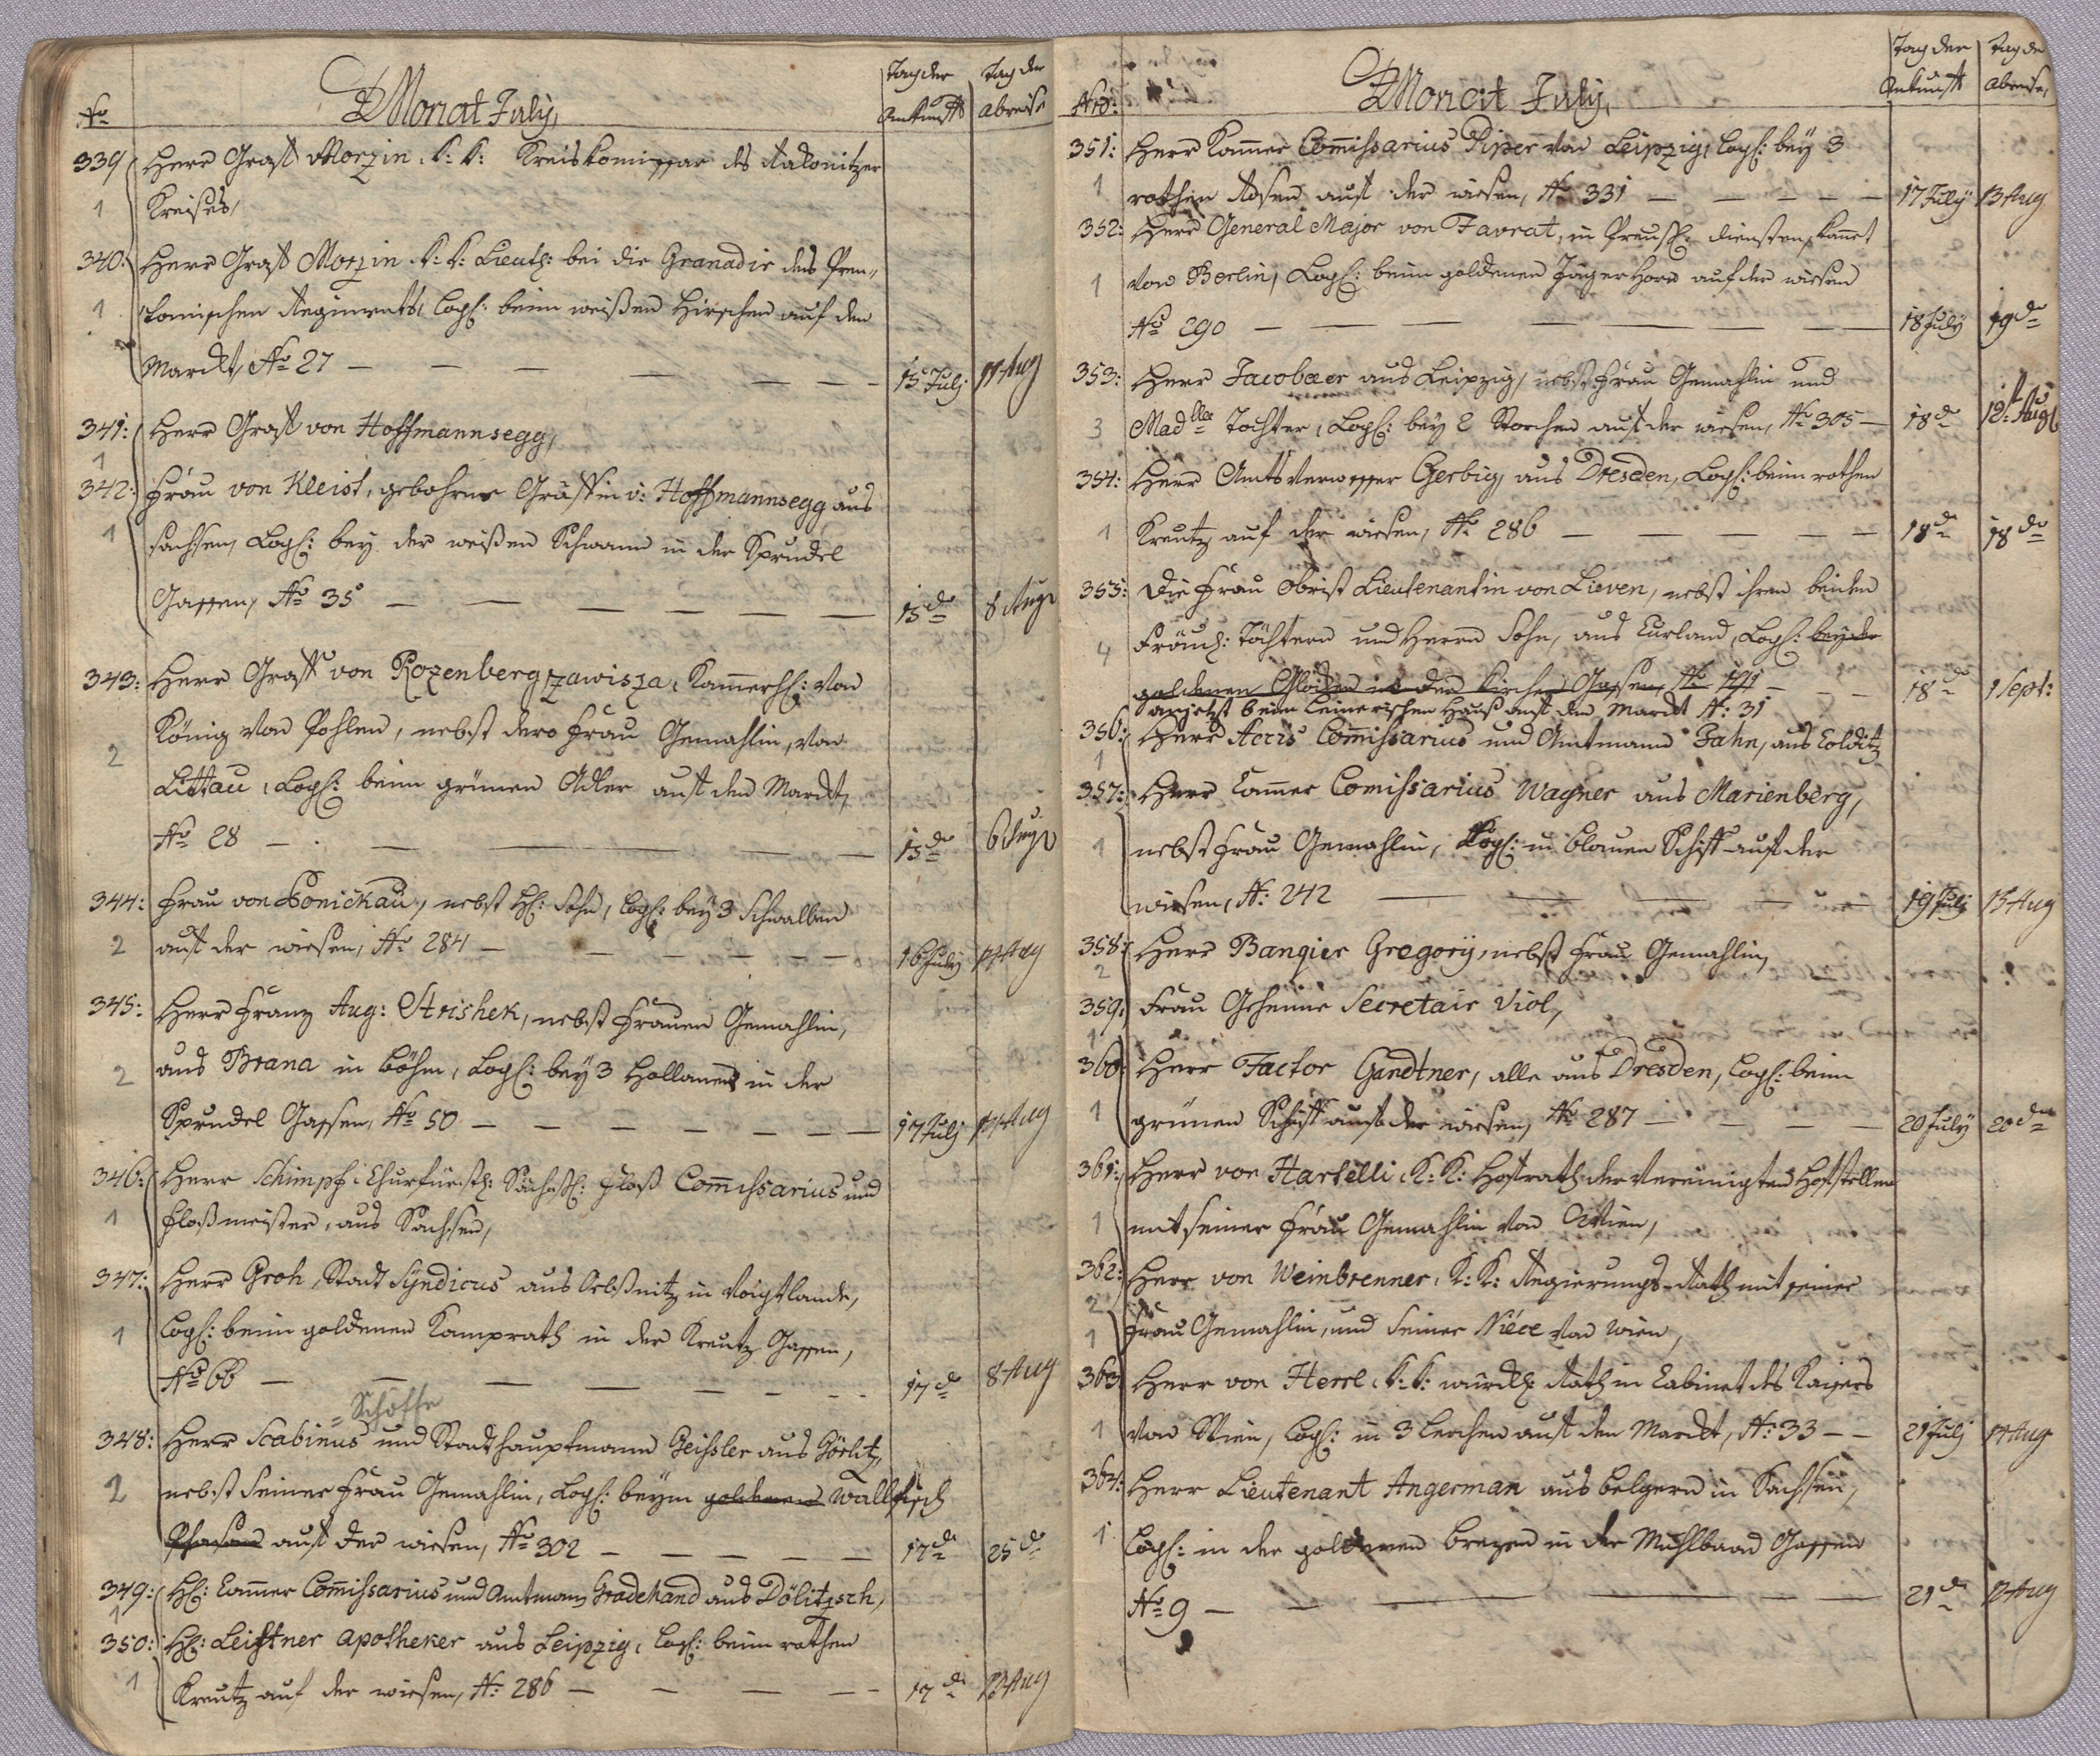 No Monat July, Tag der Ankunft Tag der abreise
339 Herr Graff Morzin, K: K: Kreiskomissar des Rakonitzer
1 Kreises,
340: Herr Graff Morzin K: K: Lieuth: bei die Granadir des
1 Regiments, Log: beim weißen Hirschen auf den
Mardt, No 27 — — — — — — 15 July 11 Aug
341: Herr Graff von Hoffmannsegg,
1
342: Frau von Kleist, gebohrne Gräffin v: Hoffmannsegg aus
1 sachsen, Log: bey der weißen Schwann in der Sprudel
Gassen, No 35 — — — — — — 15 do 8 Aug
343: Herr Graff von Rozenberg zawisza, Kammerh: von
König von Pohlen, nebst dero Frau Gemahlin, von
2 Littau, Log: beim grünen Adler auff den Mardt,
No 28 — — — — — 15 do 6 Aug
344: Frau von Ponickau, nebst H: Sohn, Log: bey 3 Schwalben
2 auff der wiesen, No 284 — — — — — — 16 July 14 Aug
345: Herr Franz Aug: Strishek, nebst Frauen Gemahlin,
2 aus Brana in böhm, Log: bey 3 Hollaner in der
Sprudel Gassen, No 50 — — — — — — — 17 July 14 Aug
346: Herr Schimpf, Churfürstl: Sächs: Floß Commissarius und
1 Floßmeister, aus Sachsen,
347: Herr Groh, Stadt Syndicus aus Oelßnitz in Voigtlande,
1 Log: beim goldenen Kamprath in der Kreutz Gassen,
No 66 — — — — — — — 17 do 8 Aug
= Schöffe
348: Herr Scabinus und Stadthauptmann Geissler aus Görlitz,
2 nebst seiner Frau Gemahlin, Log: beym goldenen Wallfisch
Phasan auff der wiesen, No 302 — — — — — 17 do 25 do
349: H: Cammer Commissarius und Amtmann Gradehand aus Dölitzsch,
1
350: H: Leistner apotheker aus Leipzig, Log: beim rothen
1 Kreutz auf der wiesen, No 286 — — — — 17 do 13 Aug
Nro: Monat July, Tag der Ankunft Tag der abreise,
351: Herr Kammer Commissarius Piper von Leipzig, Log: bey 3
1 rothen Rosen auff der wiesen, No 331 — — — — — 17 July 13 Aug
352: Herr General Major von Favrat, in Preuss: diensten, kommt
1 von Berlin, Log: beim goldenen Jäger Horn auf der wiesen
No 290 — — — — — — — 18 July 19 do
353: Herr Jacobaer aus Leipzig, nebst Frau Gemahlin und
3 Madlle Tochter, Log: bey 2 Storchen auff der wiesen, No 305 — 18 do 12: Aug
354: Herr Amtsverwesser Gerbig, aus Dresden, Log: beim rothen
1 Kreutz auf der wiesen, No 286 — — — — — 18 do 18 do
355: Die Frau Obrist Lieutenantin von Lieven, nebst ihren beiden
4 Fräul: Töchtern und Herrn Sohn, aus Curland, Log: bey der
goldenen Gloken in der Kirchen Gassen, No 191 — — — 18 do 1 Sept:
anjetzt beim Leinerischen Hauß auff den Mardt No: 31
356: Herr Accis Commissarius und Amtmann Jahn, aus Colditz
1
357: Herr Cammer Comissarius Wagner aus Marienberg,
1 nebst Frau Gemahlin, Log: in blauen Schiff auff der
wiesen, No: 242 — — — — — 19 July 15 Aug
358: Herr Banqier Gregory, nebst Frau Gemahlin,
2
359: Frau Geheime Secretair Viol,
1
360: Herr Factor Gandtner, alle aus Dresden, Log: beim
1 grünen Schiff auff der wiesen, No 287 — — — — — 20 July 20 do
361: Herr von Hartelli, K: K: Hoffrath der Vereinigten Hoffstellen
1 mit seiner Frau Gemahlin von Wien,
362: Herr von Weinbrenner, K: K: Regierungs-Rath mit seiner
2
1 Frau Gemahlin, und seiner Niéce von Wien,
363 Herr von Herrl, K: K: würckl: Rath in Cabinet des Kaysers
1 von Wien, Log: in 3 Lerchen auff den Mardt, No: 33 — — 21 July 14 Aug
364: Herr Lieutenant Angerman aus belgern in Sachsen,
1 Log: in der goldenen brezen in der Mühlbaad Gassen
No 9 — — — — — — 21 do 12 Aug